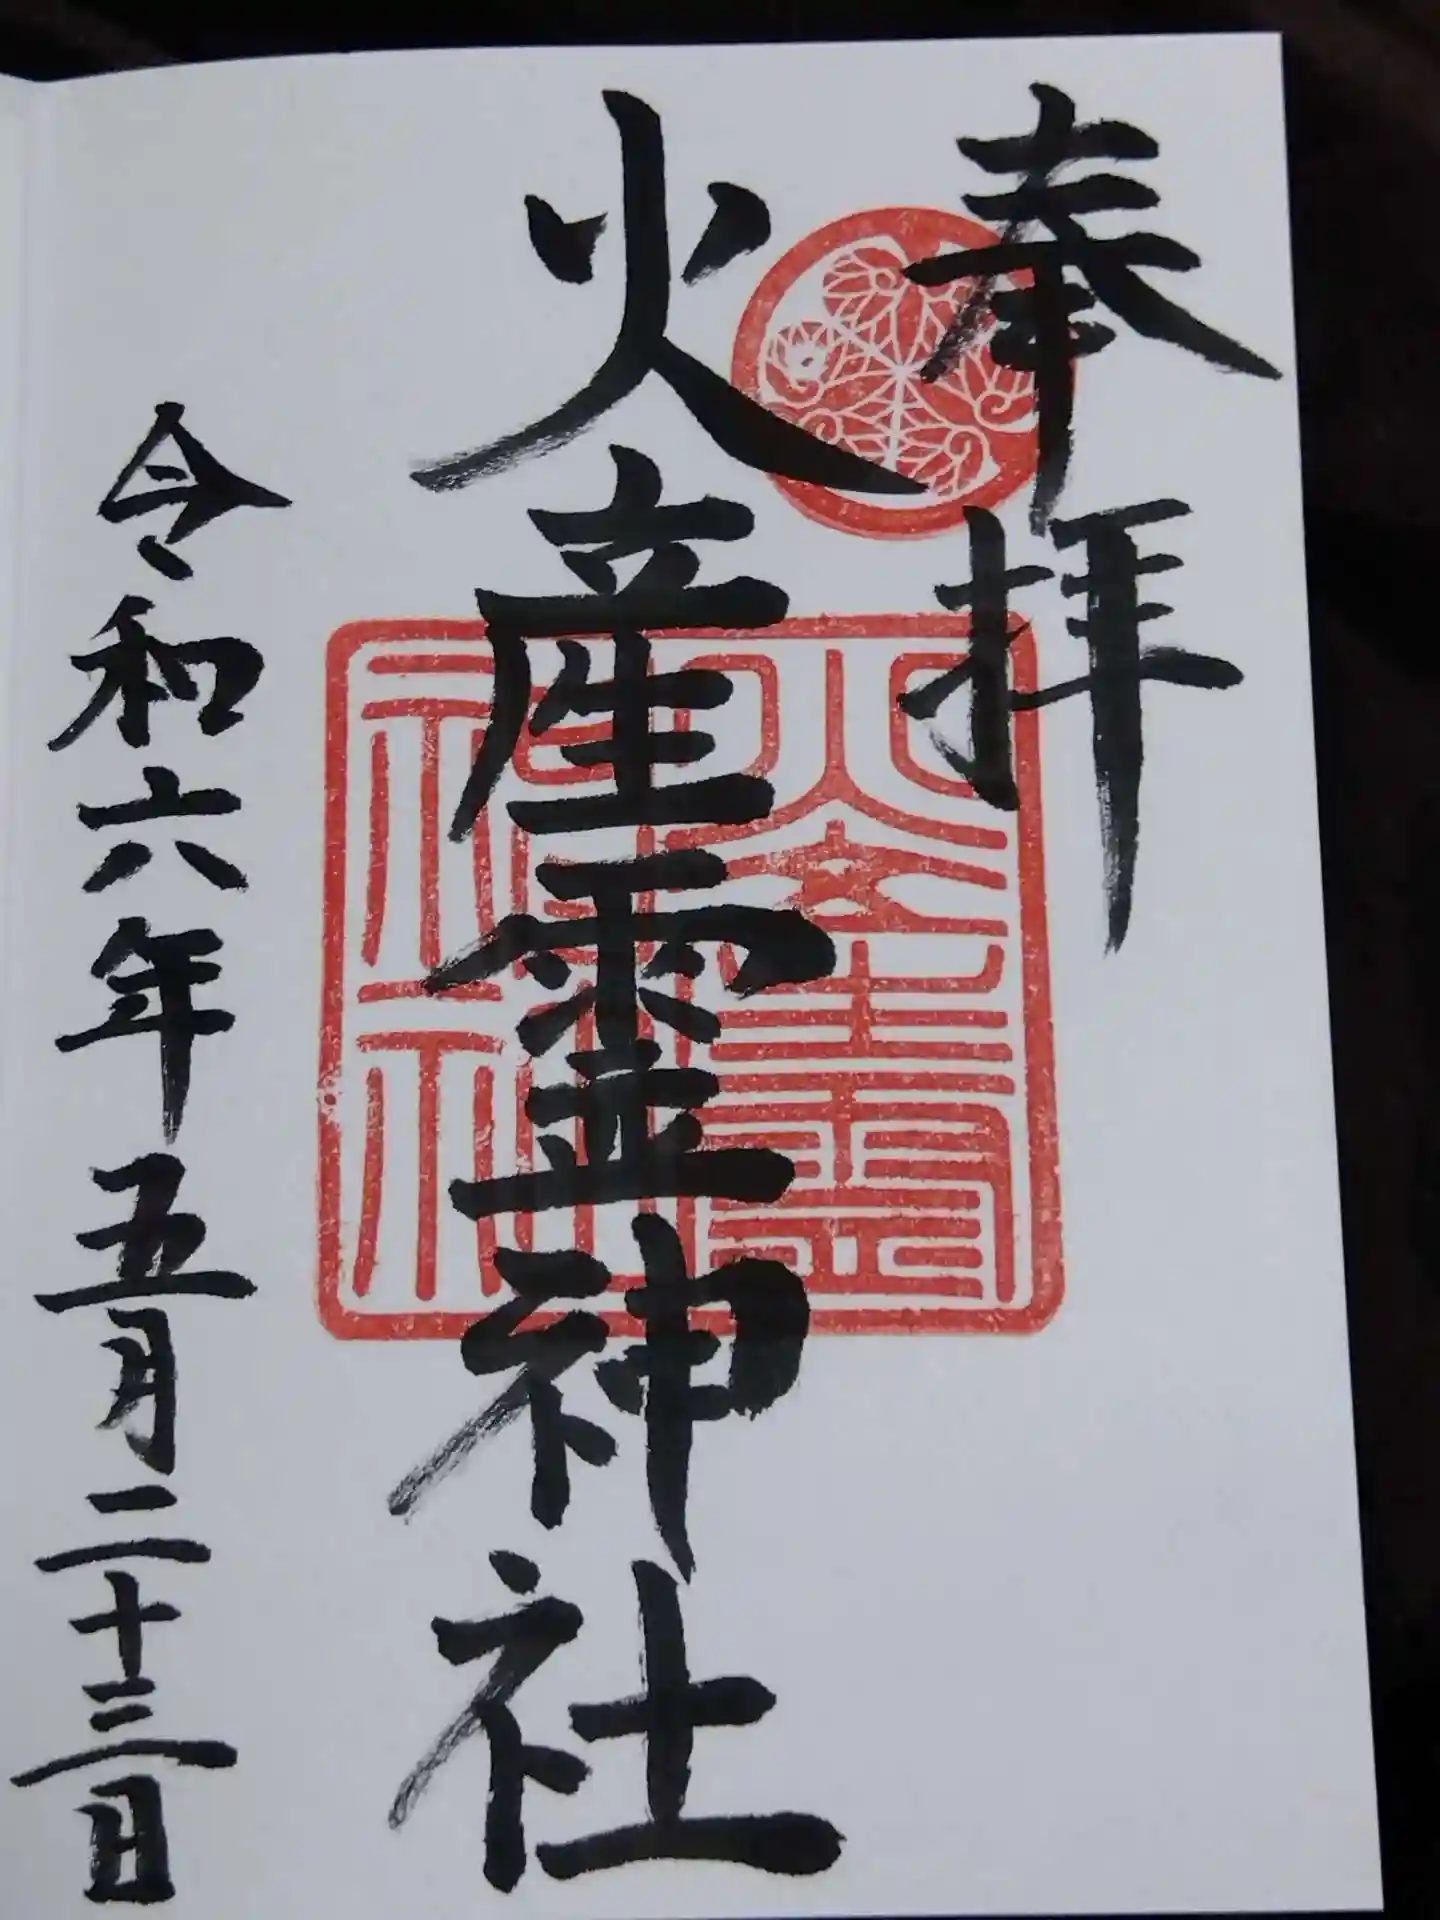 奉拝
火産霊神社
令和六年五月二十三日
火産霊
神社